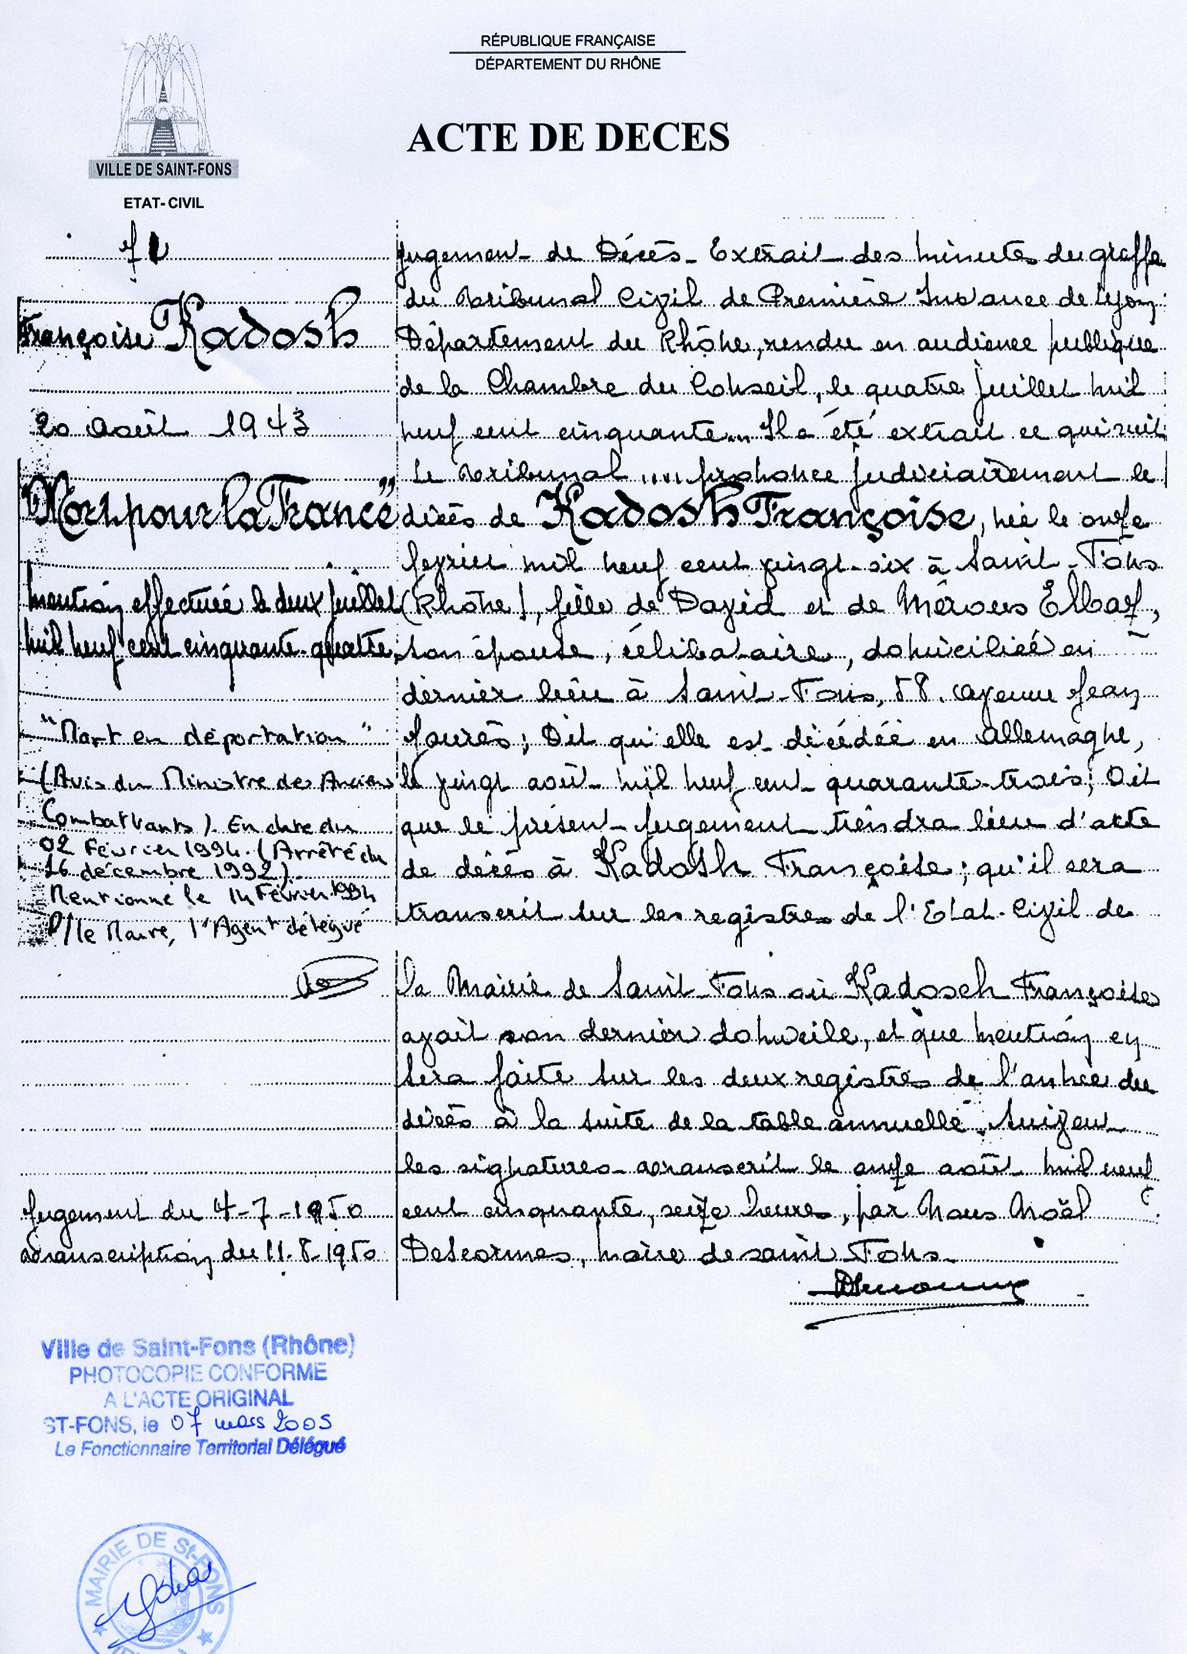 RÉPUBLIQUE FRANÇAISE
DÉPARTEMENT DU RHÔNE
ACTE DE DECES
VILLE DE SAINT-FONS
ETAT-CIVIL
Françoise Kadosh
20 août 1943
"Mort pour la France"
mention effectuée le deux juillet
mil neuf cent cinquante-quatre
"Mort en déportation"
(Avis du Ministre des Anciens
Combattants). En date du
02 Février 1994. (Arrêté du
16 décembre 1992).
Mentionné le 14 Février 1994
P/le Maire, l'Agent délégué
Jugement du 4-7-1950
transcription du 11.8.1950
Jugement de Décès - Extrait des minutes du greffe
du Tribunal Civil de Première Instance de Lyon
Département du Rhône, rendu en audience publique
de la Chambre du Conseil, le quatre juillet mil
neuf cent cinquante... Il a été extrait ce qui suit
Le Tribunal .... prononce judiciairement le
décès de Kadosh Françoise, née le onze
février mil neuf cent vingt-six à Saint-Fons
(Rhône), fille de David et de Mérous Elbaz,
son épouse, célibataire, domiciliée en
dernier lieu à Saint-Fons, 58. avenue Jean
Jaurès; Dit qu'elle est décédée en Allemagne,
le vingt août mil neuf cent quarante-trois; Dit
que le présent jugement tiendra lieu d'acte
de décès à Kadosh Françoise; qu'il sera
transcrit sur les registres de l'Etat-Civil de
la Mairie de Saint-Fons où Kadosch Françoise
avait son dernier domicile, et que mention en
sera faite sur les deux registres de l'année du
décès à la suite de la table annuelle. Suivent
les signatures - transcrit le onze août mil neuf
cent cinquante, seize heures, par Nous Noël
Descormes, maire de Saint Fons.
Ville de Saint-Fons (Rhône)
PHOTOCOPIE CONFORME
A L'ACTE ORIGINAL
ST-FONS, le 07 mars 2005
Le Fonctionnaire Territorial Délégué
MAIRIE DE St-FONS